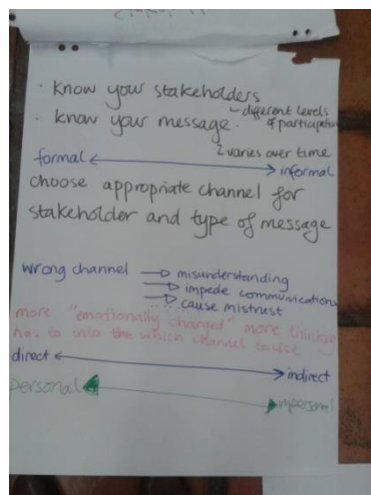 · know your stakeholders
- different levels
of participation
· know your message.
2 varies over time
formal informal
choose appropriate channel for
stakeholder and type of message
wrong channel misunderstanding
impede communication
..... cause mistrust
more "emotionally charged" more thinking
has to into the which channel to use
direct indirect
personal impersonal